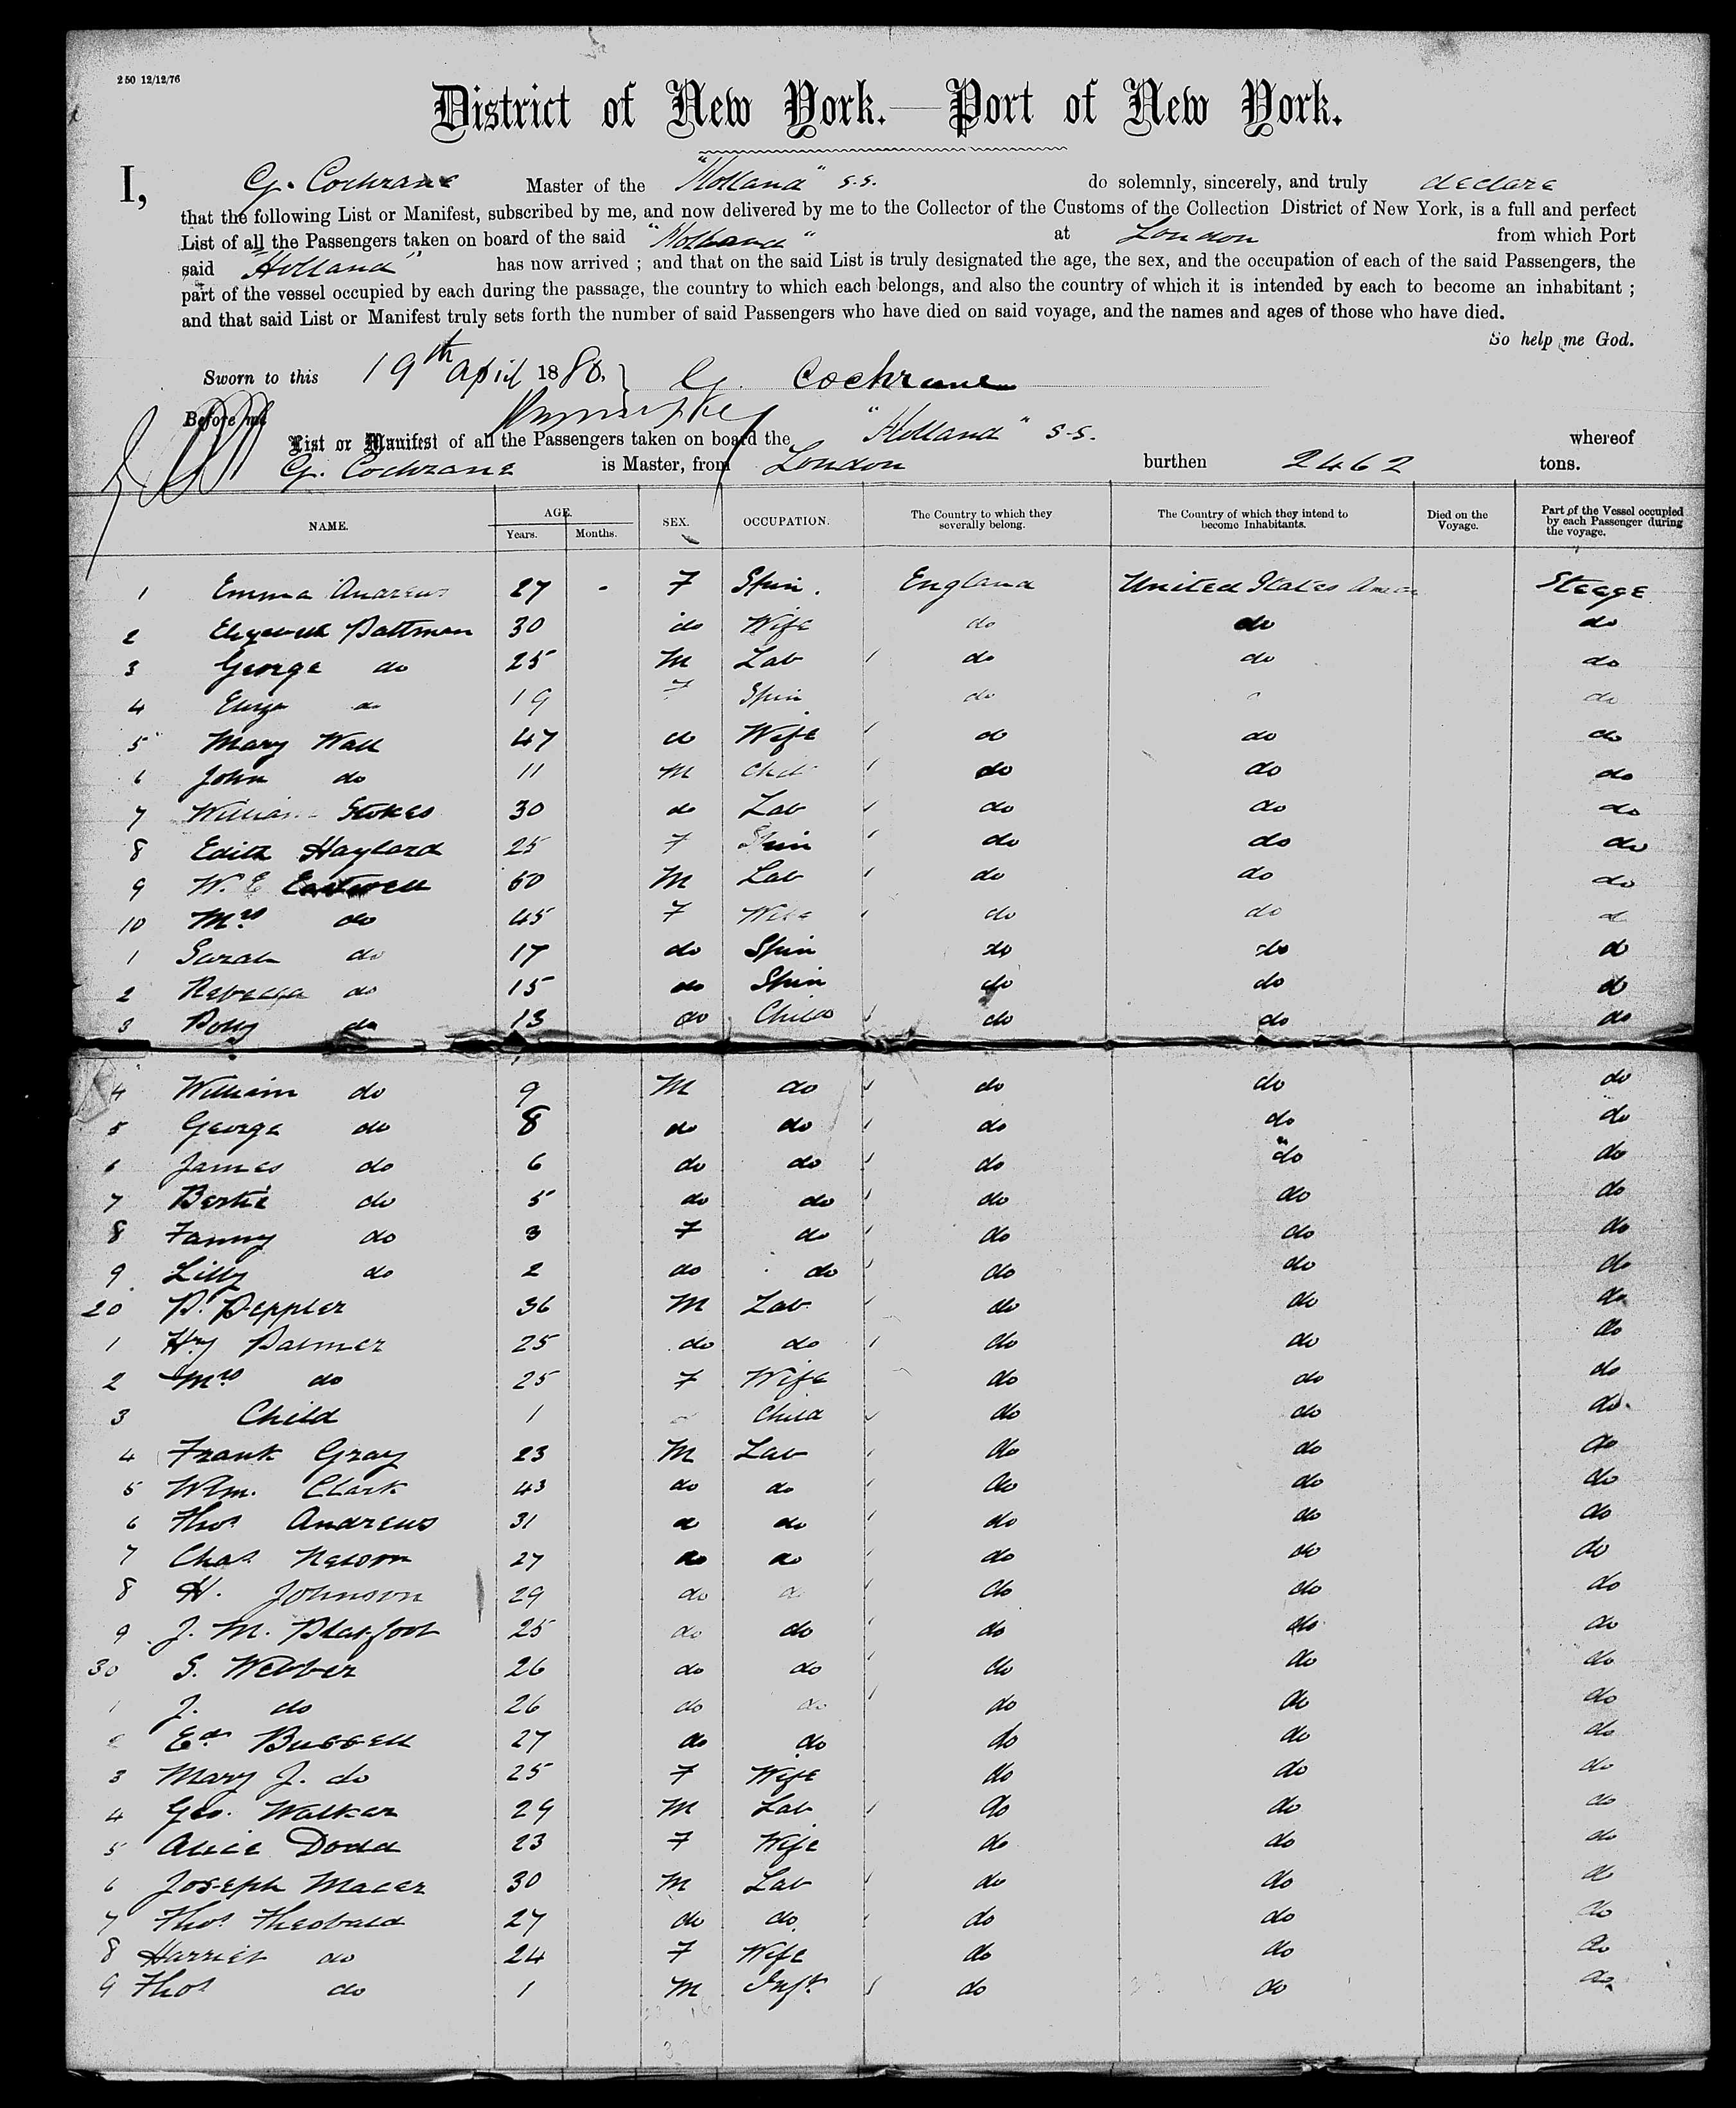 250 12/12/76
District of New York.—Port of New York.
I, G. Cochrane Master of the "Holland" s.s. do solemnly, sincerely, and truly declare
that the following List or Manifest, subscribed by me, and now delivered by me to the Collector of the Customs of the Collection District of New York, is a full and perfect
List of all the Passengers taken on board of the said "Holland" at London from which Port
said "Holland" has now arrived ; and that on the said List is truly designated the age, the sex, and the occupation of each of the said Passengers, the
part of the vessel occupied by each during the passage, the country to which each belongs, and also the country of which it is intended by each to become an inhabitant ;
and that said List or Manifest truly sets forth the number of said Passengers who have died on said voyage, and the names and ages of those who have died.
So help me God.
Sworn to this 19th April 1880, } G. Cochrane
Before me
List or Manifest of all the Passengers taken on board the "Holland" s.s. whereof
G. Cochrane is Master, from London burthen 2462 tons.
NAME. AGE. Years. Months. SEX. OCCUPATION. The Country to which they severally belong. The Country of which they intend to become Inhabitants. Died on the Voyage. Part of the Vessel occupied by each Passenger during the voyage.
1 Emma Andrews 27 - F Spin. England United States America Steege
2 Elizabeth Pattman 30 do Wife do do do
3 George do 25 M Lab do do do
4 Eliza do 19 F Spin. do do
5 Mary Wall 47 do Wife do do do
6 John do 11 M Child do do do
7 William Stokes 30 do Lab do do do
8 Edith Haylard 25 F Spin do do do
9 W. E Eastwell 60 M Lab do do do
10 Mrs do 45 F Wife do do do
1 Sarah do 17 do Spin do do do
2 Rebecca do 15 do Spin do do do
3 Polly do 13 do Child do do do
4 William do 9 M do do do do
5 George do 8 do do do do do
6 James do 6 do do do do do
7 Bertie do 5 do do do do do
8 Fanny do 3 F do do do do
9 Lilly do 2 do do do do do
20 P. Peppler 36 M Lab do do do
1 Hry Palmer 25 do do do do do
2 Mrs do 25 F Wife do do do
3 Child 1 do Child do do do
4 Frank Gray 23 M Lab do do do
5 Wlm. Clark 43 do do do do do
6 Thos Andrews 31 do do do do do
7 Chas Newson 27 do do do do do
8 H. Johnson 29 do do do do do
9 J. M. Platfoot 25 do do do do do
30 S. Webber 26 do do do do do
1 J. do 26 do do do do do
2 Ed. Bussell 27 do do do do do
3 Mary J. do 25 F Wife do do do
4 Geo. Walker 29 M Lab do do do
5 Alice Dodd 23 F Wife do do do
6 Joseph Macer 30 M Lab do do do
7 Thos Theobald 27 do do do do do
8 Harriet do 24 F Wife do do do
9 Thos do 1 M Inft do do do